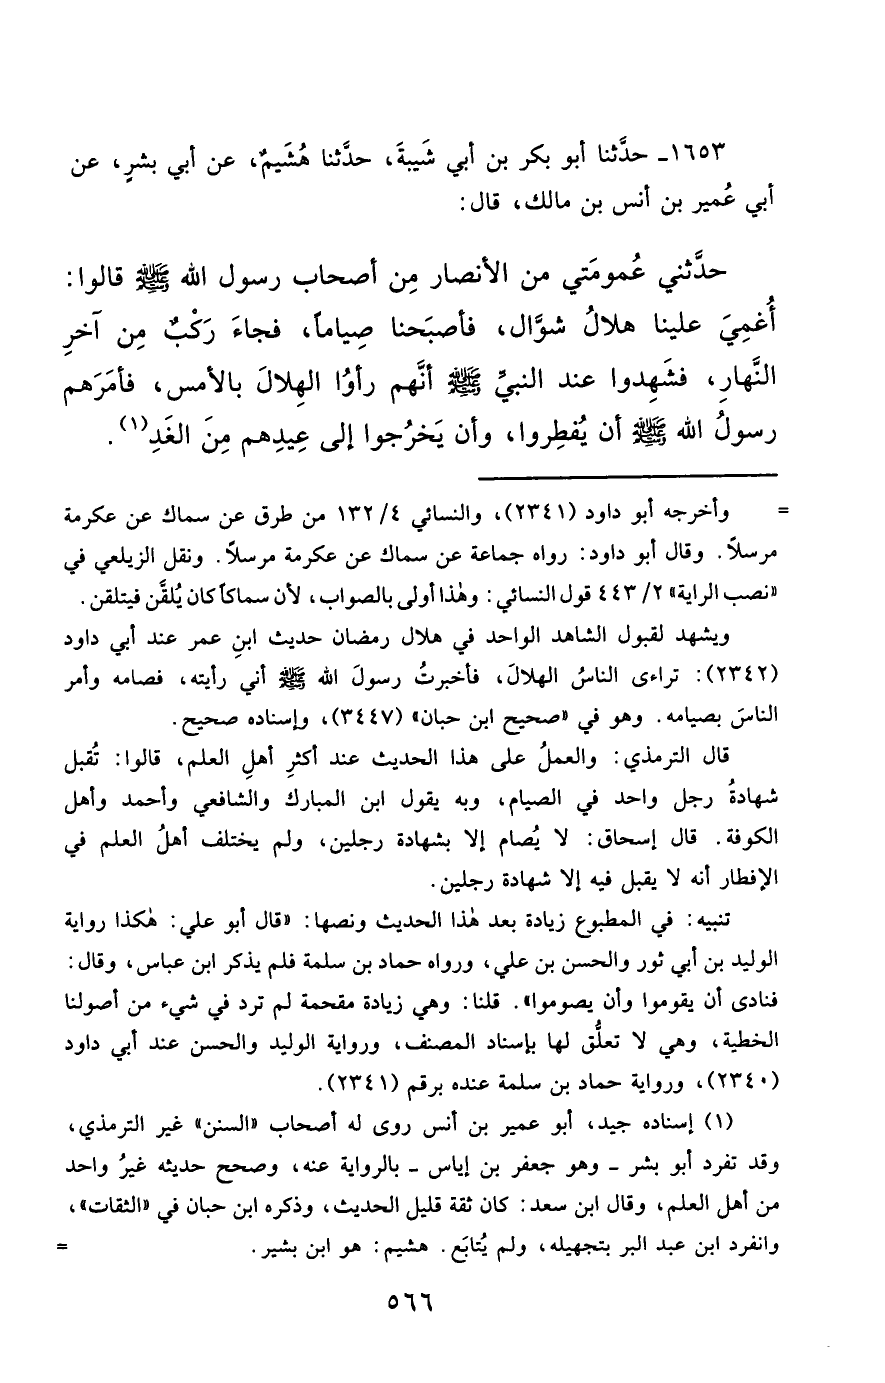 ١٦٥٣ـ حدَّثنا أبو بكر بن أبي شَيبةَ، حدَّثنا هُشَيمٌ، عن أبي بشرٍ، عن
أبي عُمير بن أنس بن مالك، قال:
حدَّثني عُمومَتي من الأنصار مِن أصحاب رسول الله ﷺ قالوا:
أُغمِيَ علينا هلالُ شوَّال، فأصبَحنا صِياماً، فجاءَ رَكْبٌ مِن آخرِ
النَّهارِ، فشَهِدوا عند النبيِّ ﷺ أنَّهم رأوُا الهِلالَ بالأمس، فأمَرَهم
رسولُ الله ﷺ أن يُفطِروا، وأن يَخرُجوا إلى عِيدِهم مِنَ الغَدِ(١).
= وأخرجه أبو داود (٢٣٤١)، والنسائي ٤/ ١٣٢ من طرق عن سماك عن عكرمة
مرسلاً. وقال أبو داود: رواه جماعة عن سماك عن عكرمة مرسلاً. ونقل الزيلعي في
«نصب الراية» ٢/ ٤٤٣ قول النسائي: وهٰذا أولى بالصواب، لأن سماكاً كان يُلقَّن فيتلقن.
ويشهد لقبول الشاهد الواحد في هلال رمضان حديث ابنِ عمر عند أبي داود
(٢٣٤٢): تراءى الناسُ الهلالَ، فأخبرتُ رسولَ الله ﷺ أني رأيته، فصامه وأمر
الناسَ بصيامه. وهو في «صحيح ابن حبان» (٣٤٤٧)، وإسناده صحيح.
قال الترمذي: والعملُ على هذا الحديث عند أكثرِ أهلِ العلم، قالوا: تُقبل
شهادةُ رجل واحد في الصيام، وبه يقول ابن المبارك والشافعي وأحمد وأهل
الكوفة. قال إسحاق: لا يُصام إلا بشهادة رجلين، ولم يختلف أهلُ العلم في
الإفطار أنه لا يقبل فيه إلا شهادة رجلين.
تنبيه: في المطبوع زيادة بعد هٰذا الحديث ونصها: «قال أبو علي: هٰكذا رواية
الوليد بن أبي ثور والحسن بن علي، ورواه حماد بن سلمة فلم يذكر ابن عباس، وقال:
فنادى أن يقوموا وأن يصوموا». قلنا: وهي زيادة مقحمة لم ترد في شيء من أصولنا
الخطية، وهي لا تعلُّق لها بإسناد المصنف، ورواية الوليد والحسن عند أبي داود
(٢٣٤٠)، ورواية حماد بن سلمة عنده برقم (٢٣٤١).
(١) إسناده جيد، أبو عمير بن أنس روى له أصحاب «السنن» غير الترمذي،
وقد تفرد أبو بشر ـ وهو جعفر بن إياس ـ بالرواية عنه، وصحح حديثه غيرُ واحد
من أهل العلم، وقال ابن سعد: كان ثقة قليل الحديث، وذكره ابن حبان في «الثقات»،
وانفرد ابن عبد البر بتجهيله، ولم يُتابَع. هشيم: هو ابن بشير. =
٥٦٦